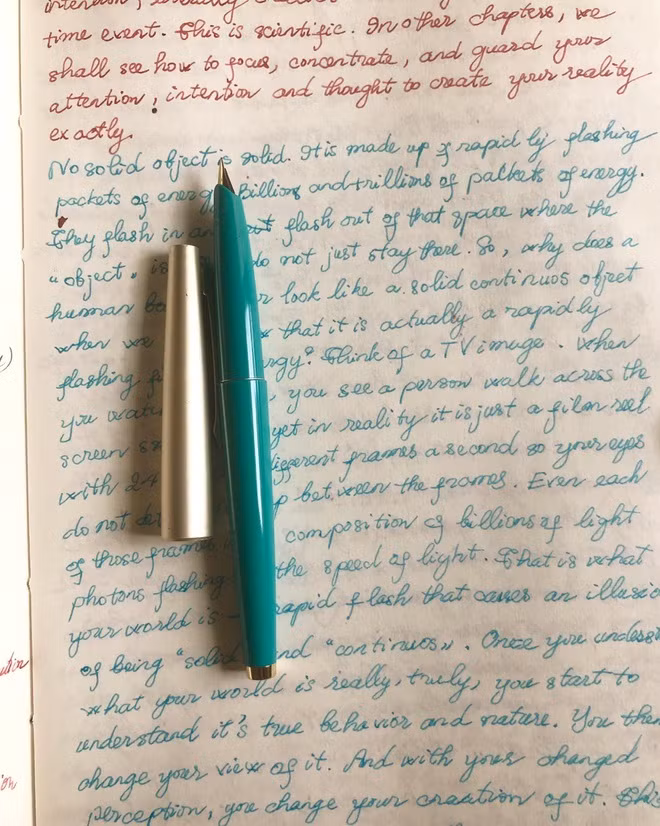 time event. This is scientific. In other chapters, we
shall see how to focus, concentrate, and guard your
attention, intention and thought to create your reality
exactly.
No solid object is solid. It is made up of rapidly flashing
packets of energy Billions and trillions of packets of energy.
They flash in and flash out of that space where the
"object" is do not just stay there. So, why does a
human look like a solid continuos object
when we that it is actually a rapidly
flashing Think of a TV image. When
you you see a person walk across the
screen yet in reality it is just a film reel
with 24 different frames a second so your eyes
do not between the frames. Even each
of those frames composition of billions of light
photons flashing the speed of light. That is what
your world is rapid flash that causes an
of being "solid and "continuos". Once you
what your world is really, truly, you start to
understand it's true behavior and nature. You then
change your view of it. And with your changed
perception, you change your creation of it.